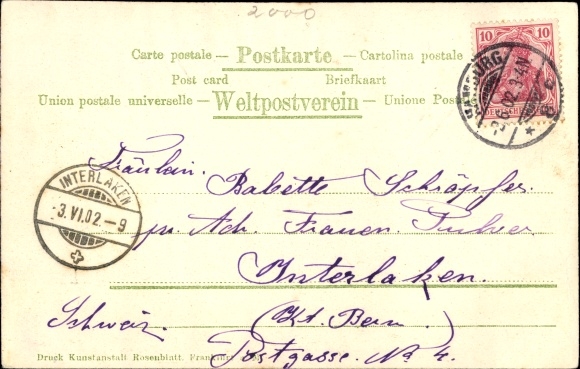 2000
Carte postale – Postkarte – Cartolina postale
Post card Briefkaart
Union postale universelle – Weltpostverein – Unione Postale
10 10
INTERLAKEN
-3.VI.02.-9
Fräulein Babette Schöpfer
pr. Adr. Frauen
Interlaken.
Schweiz. (Kt. Bern.)
Postgasse. No 4.
Druck Kunstanstalt Rosenblatt, Frankfurt